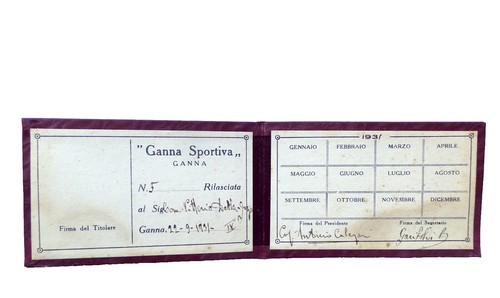 " Ganna Sportiva „
GANNA
N. 5 Rilasciata
al Sig.
Firma del Titolare
Ganna, 22-9-1931- IX
1931
GENNAIO FEBBRAIO MARZO APRILE
MAGGIO GIUGNO LUGLIO AGOSTO
SETTEMBRE OTTOBRE NOVEMBRE DICEMBRE
Firma del Presidente Firma del Segretario
Antonio